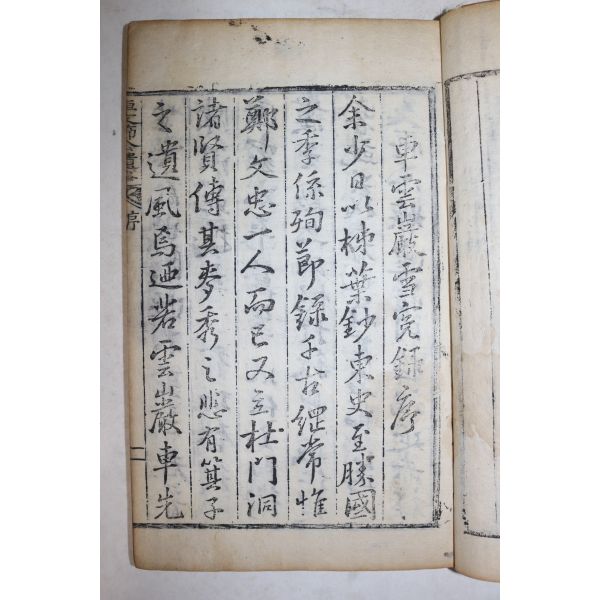 車雲巖雪冤錄序
余少日以柹葉鈔東史至勝國
之季係殉節錄千古綱常惟
鄭文忠一人而已又立杜門洞
諸賢傳其麥秀之悲有箕子
之遺風焉廼若雲巖車先
序